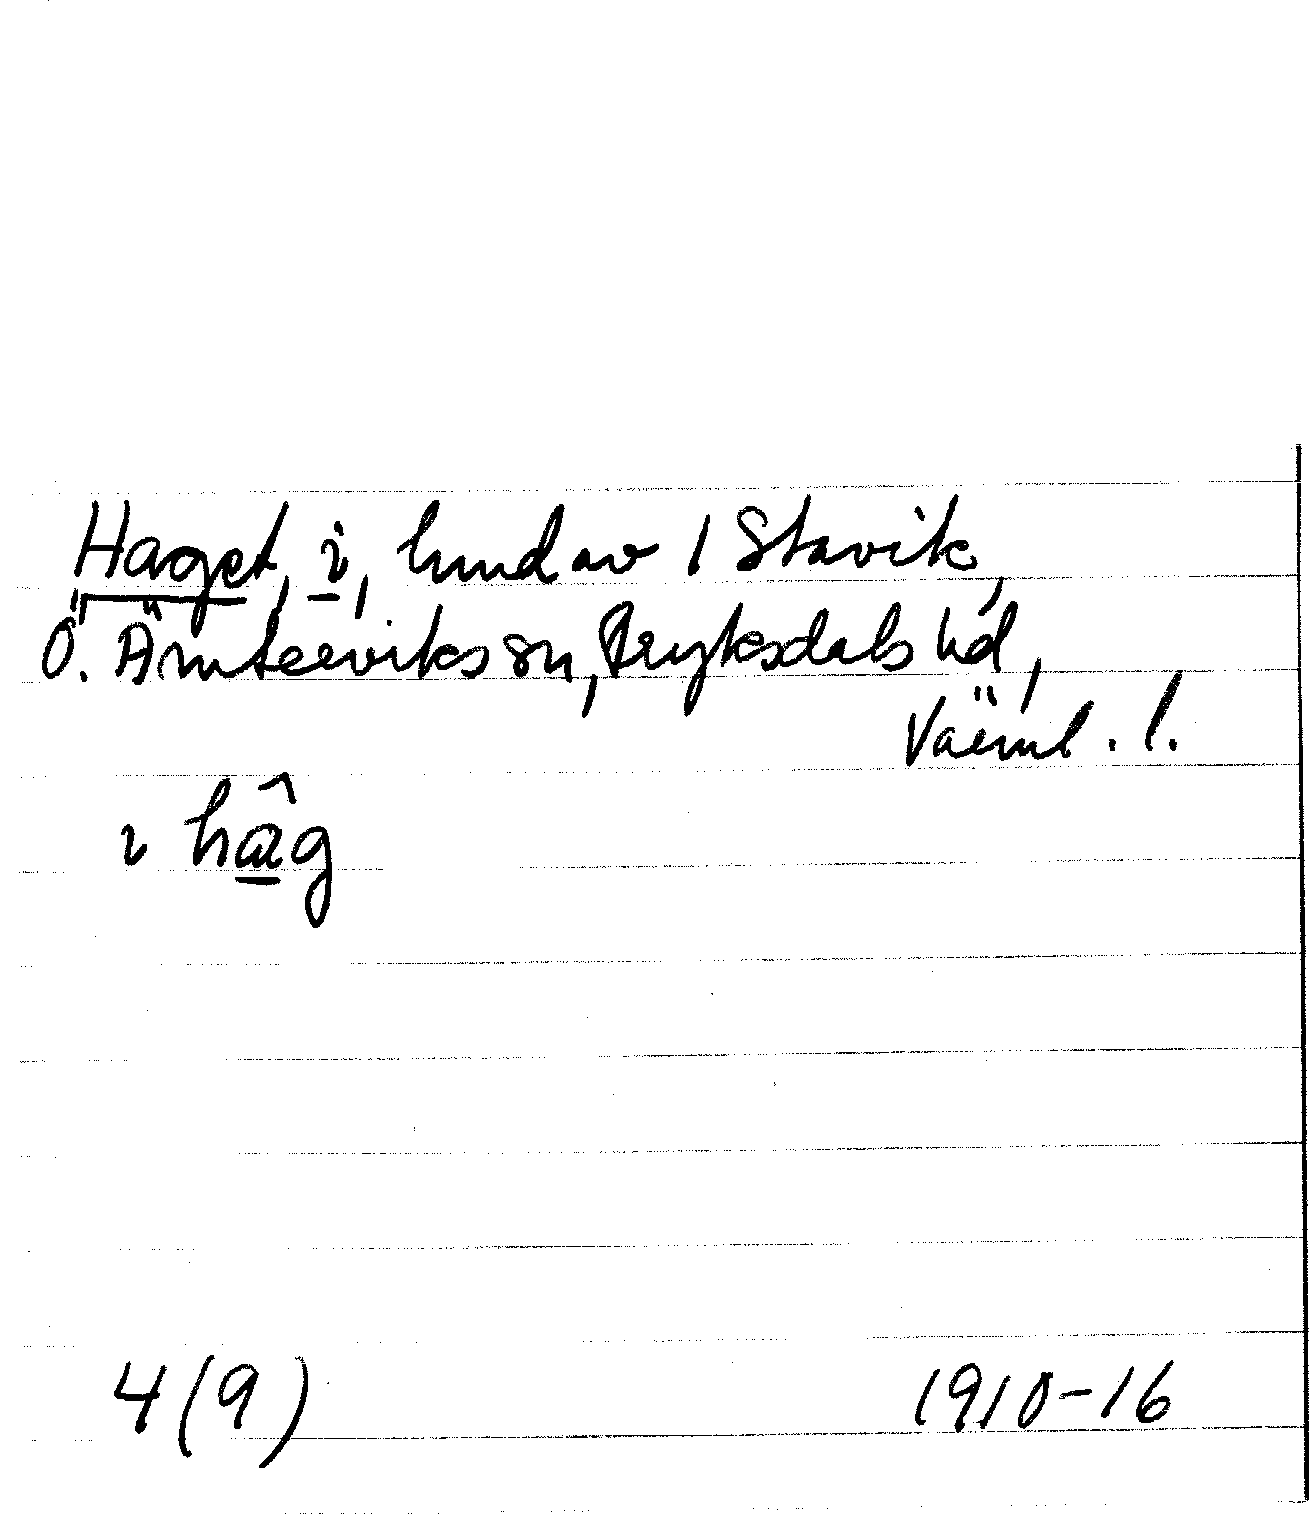 Haget, i, hmd av 1 Stavik,
Ö. Ämterviks sn, Fryksdals hd,
Värml. l.
i hâg
4(9) 1910-16